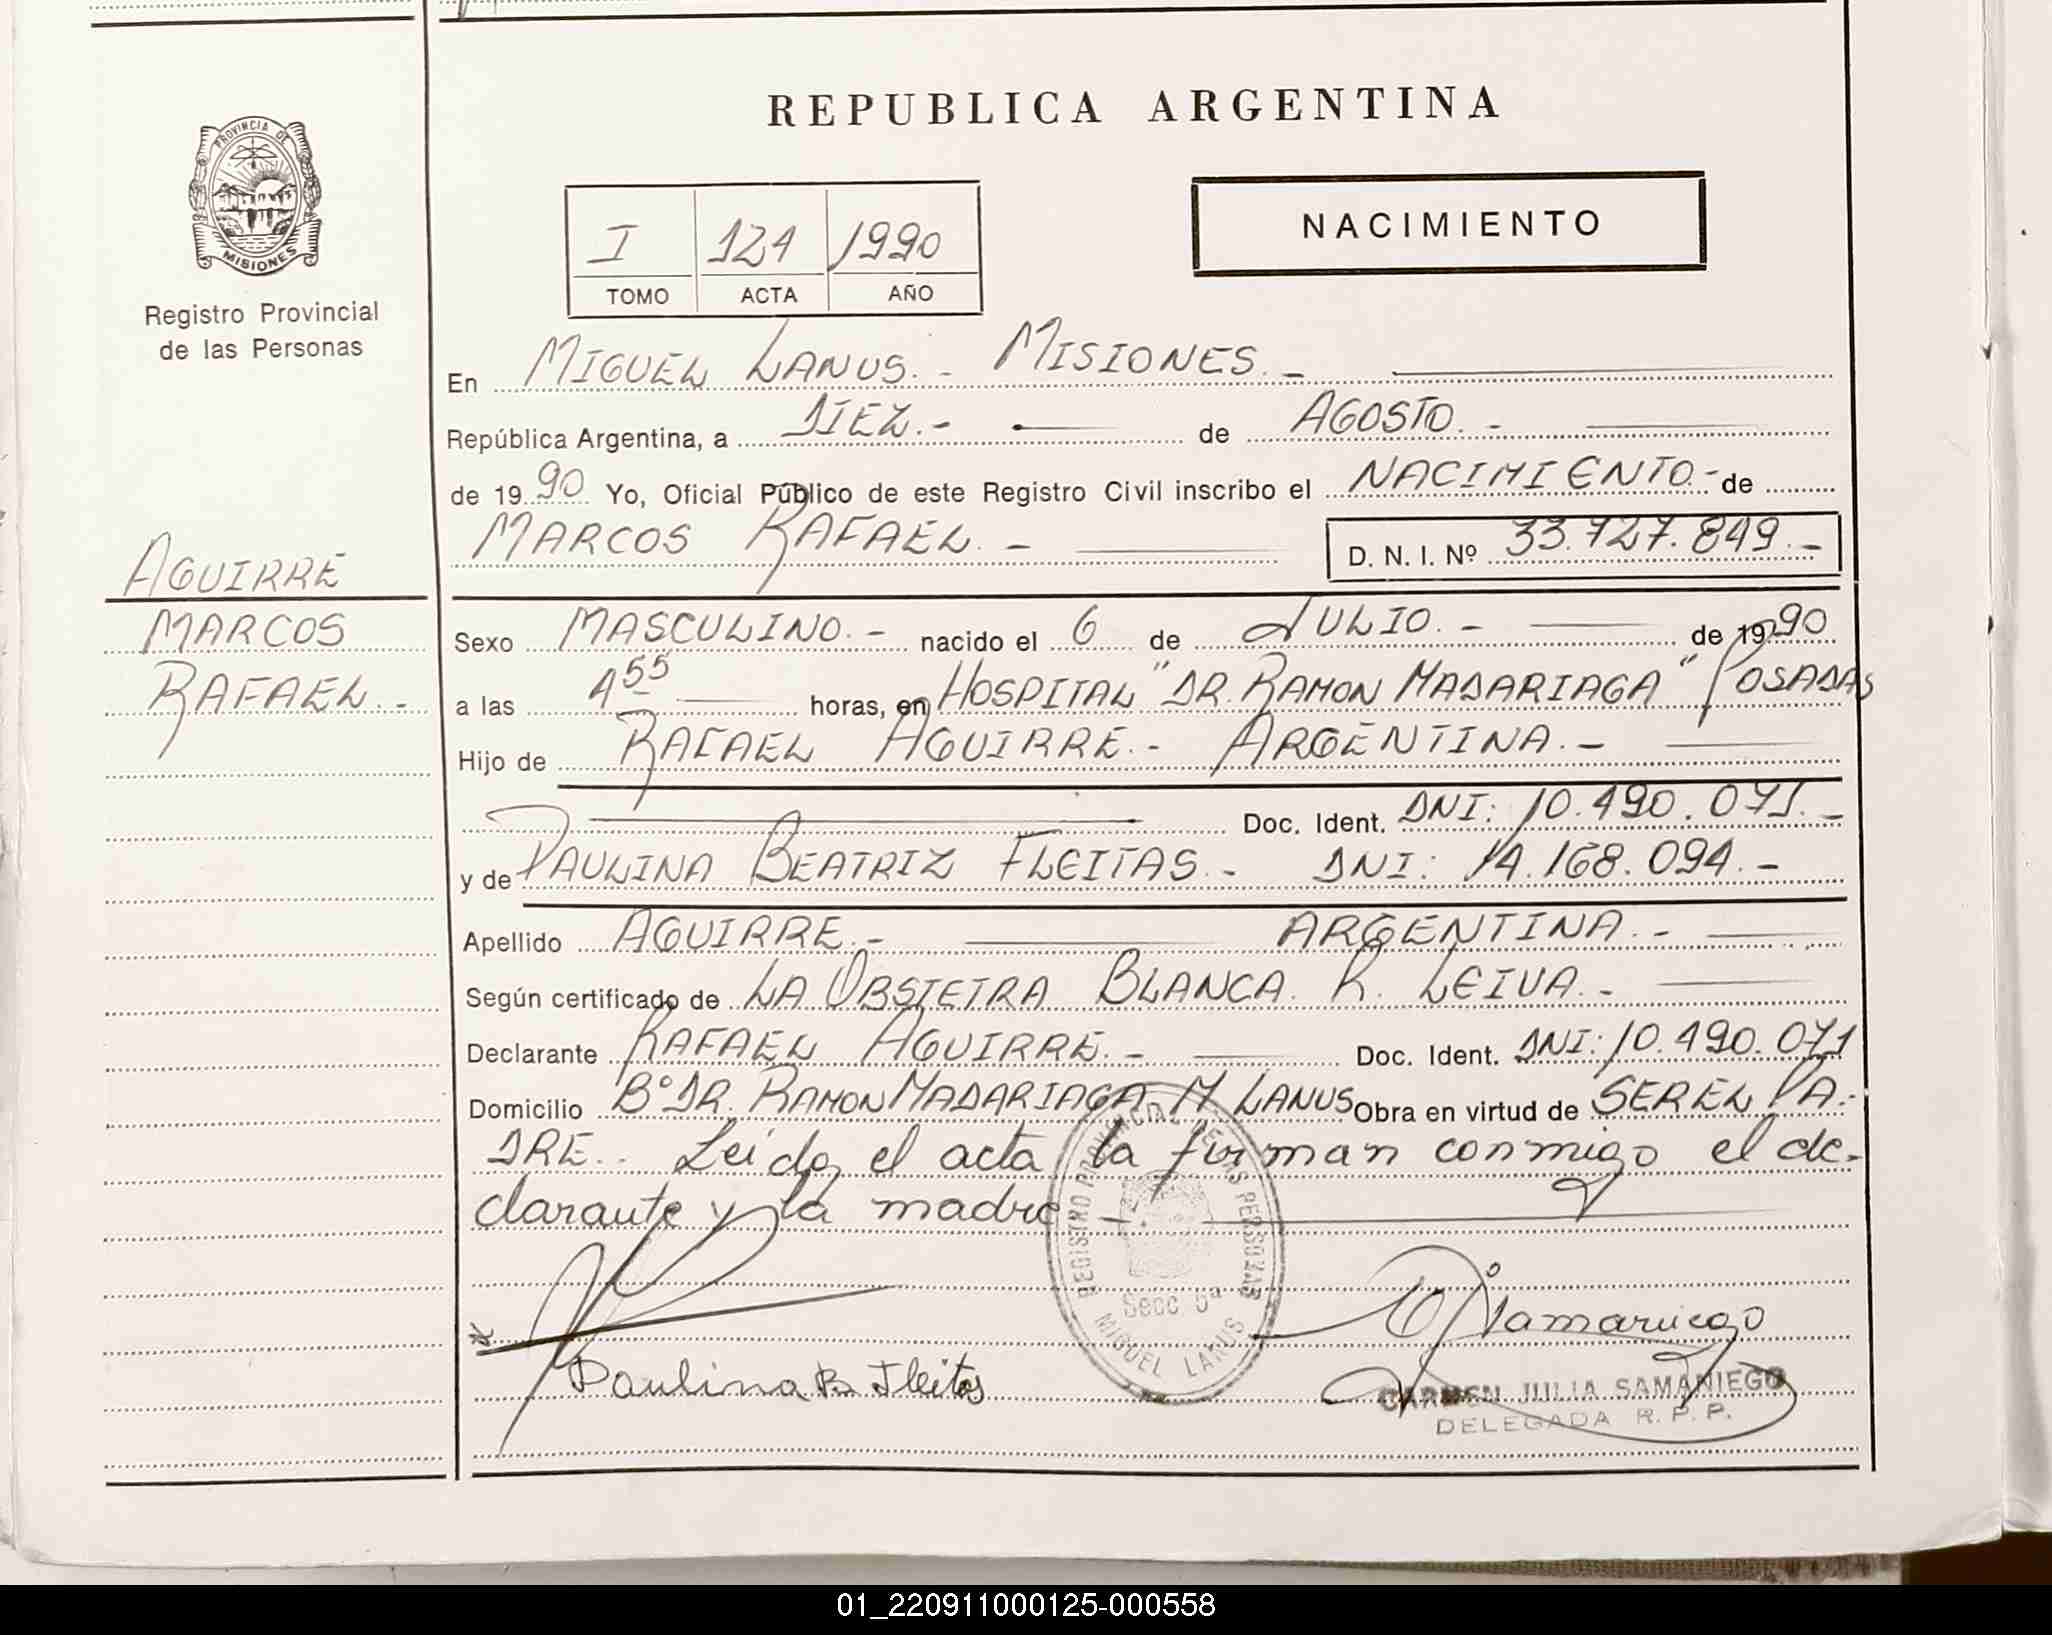 REPUBLICA ARGENTINA
PROVINCIA DE
MISIONES
Registro Provincial
de las Personas
NACIMIENTO
I 124 1990
TOMO ACTA AÑO
En MIGUEL LANUS.- MISIONES.-
República Argentina, a DIEZ.- de AGOSTO.-
de 1990 Yo, Oficial Público de este Registro Civil inscribo el NACIMIENTO- de
MARCOS RAFAEL.- D. N. I. Nº 33.727.849.-
AGUIRRE
MARCOS
RAFAEL.-
Sexo MASCULINO.- nacido el 6 de JULIO.- de 1990
a las 4 55 horas, en HOSPITAL "DR. RAMON MADARIAGA" POSADAS
Hijo de RAFAEL AGUIRRE.- ARGENTINA.-
Doc. Ident. DNI: 10.490.071.-
y de PAULINA BEATRIZ FLEITAS.- DNI: 14.168.094.-
Apellido AGUIRRE.- ARGENTINA.-
Según certificado de LA OBSTETRA BLANCA R. LEIVA.-
Declarante RAFAEL AGUIRRE.- Doc. Ident. DNI: 10.490.071
Domicilio Bº DR. RAMON MADARIAGA-M LANUS Obra en virtud de SER EL PA-
DRE.. Leida el acta la firman conmigo el de-
clarante y la madre
REGISTRO PROVINCIAL DE LAS PERSONAS
Secc 5ª
MIGUEL LANUS
Samaniego
Paulina B. Fleitas
CARMEN JULIA SAMANIEGO
DELEGADA R. P. P.
01_220911000125-000558